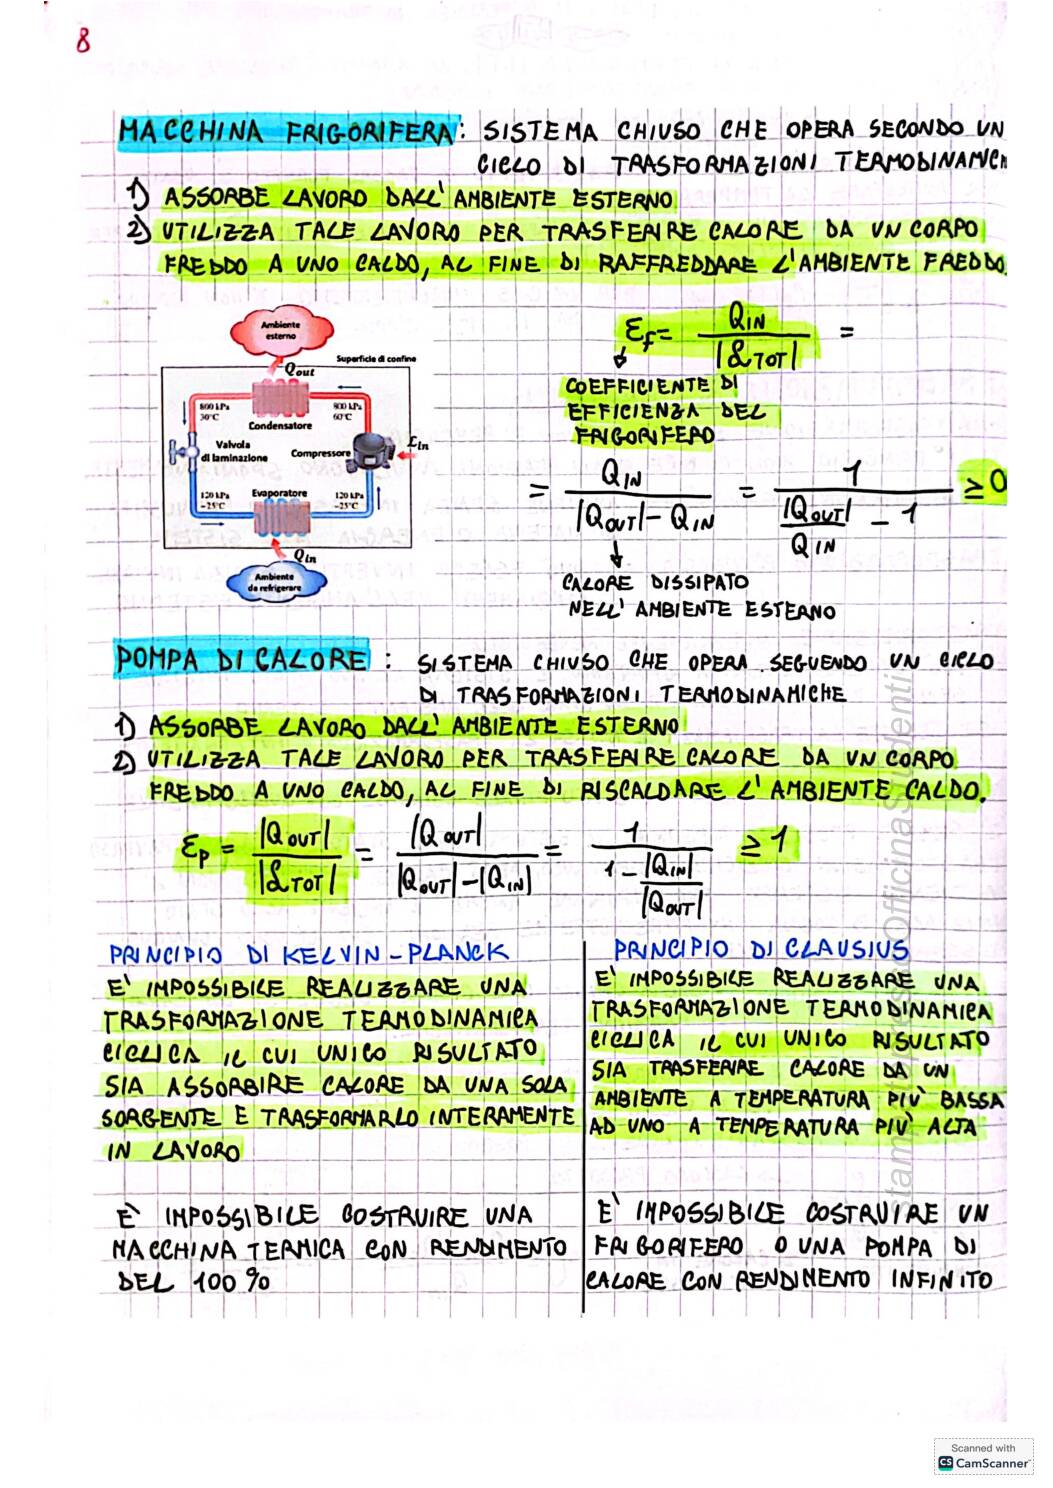 8
MACCHINA FRIGORIFERA: SISTEMA CHIUSO CHE OPERA SECONDO UN
CICLO DI TRASFORMAZIONI TERMODINAMICH
1) ASSORBE LAVORO DALL'AMBIENTE ESTERNO
2) UTILIZZA TALE LAVORO PER TRASFERIRE CALORE DA UN CORPO
FREDDO A UNO CALDO, AL FINE DI RAFFREDDARE L'AMBIENTE FREDDO.
Ambiente
esterno
Qout
Superficie di confine
800 kPa
30°C
Condensatore
800 kPa
60°C
Valvola
di laminazione
Compressore
Lin
120 kPa
-25°C
Evaporatore
120 kPa
-25°C
Qin
Ambiente
da refrigerare
εf = QIN / |LTOT| =
COEFFICIENTE DI
EFFICIENZA DEL
FRIGORIFERO
= QIN / (|QOUT| - QIN) = 1 / (|QOUT| / QIN - 1) ≥ 0
CALORE DISSIPATO
NELL'AMBIENTE ESTERNO
POMPA DI CALORE: SISTEMA CHIUSO CHE OPERA SEGUENDO UN CICLO
DI TRASFORMAZIONI TERMODINAMICHE
1) ASSORBE LAVORO DALL'AMBIENTE ESTERNO
2) UTILIZZA TALE LAVORO PER TRASFERIRE CALORE DA UN CORPO
FREDDO A UNO CALDO, AL FINE DI RISCALDARE L'AMBIENTE CALDO.
εp = |QOUT| / |LTOT| = |QOUT| / (|QOUT| - |QIN|) = 1 / (1 - |QIN| / |QOUT|) ≥ 1
PRINCIPIO DI KELVIN-PLANCK
E' IMPOSSIBILE REALIZZARE UNA
TRASFORMAZIONE TERMODINAMICA
CICLICA IL CUI UNICO RISULTATO
SIA ASSORBIRE CALORE DA UNA SOLA
SORGENTE E TRASFORMARLO INTERAMENTE
IN LAVORO
È IMPOSSIBILE COSTRUIRE UNA
MACCHINA TERMICA CON RENDIMENTO
DEL 100%
PRINCIPIO DI CLAUSIUS
E' IMPOSSIBILE REALIZZARE UNA
TRASFORMAZIONE TERMODINAMICA
CICLICA IL CUI UNICO RISULTATO
SIA TRASFERIRE CALORE DA UN
AMBIENTE A TEMPERATURA PIÙ BASSA
AD UNO A TEMPERATURA PIÙ ALTA
E' IMPOSSIBILE COSTRUIRE UN
FRIGORIFERO O UNA POMPA DI
CALORE CON RENDIMENTO INFINITO
Scanned with
CS CamScanner